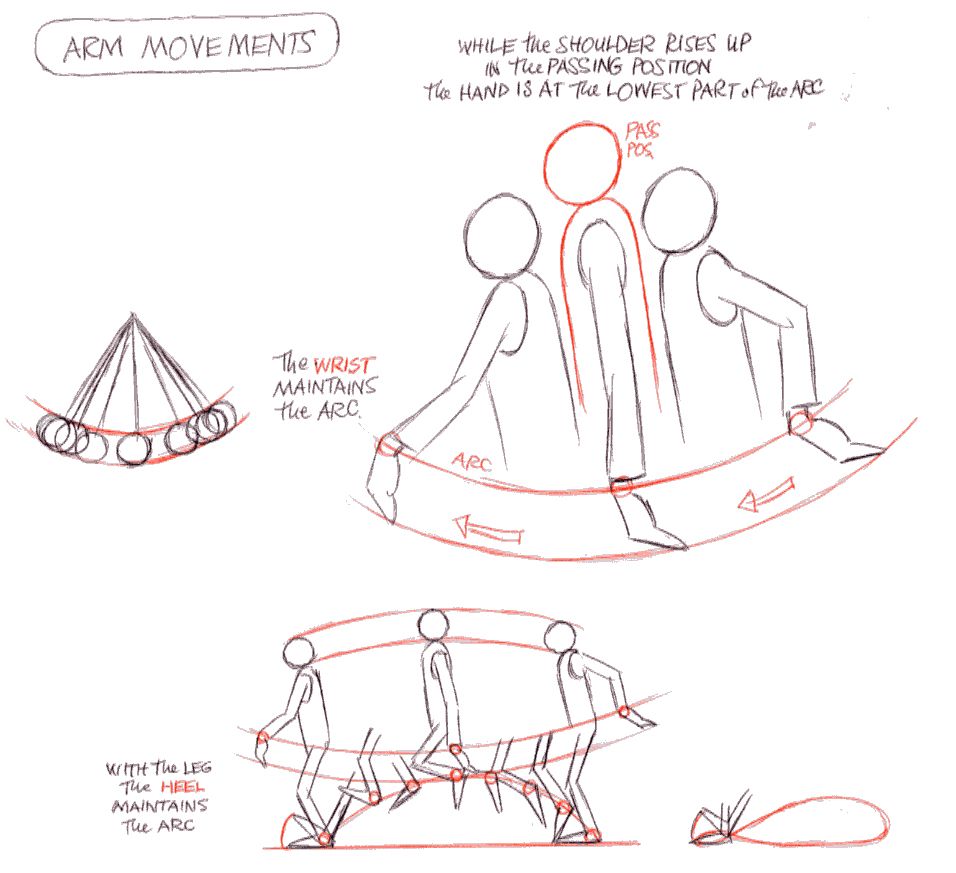 ARM MOVEMENTS
WHILE the SHOULDER RISES UP
IN the PASSING POSITION
the HAND IS AT the LOWEST PART of the ARC
PASS
POS.
The WRIST
MAINTAINS
the ARC.
ARC
WITH the LEG
the HEEL
MAINTAINS
the ARC